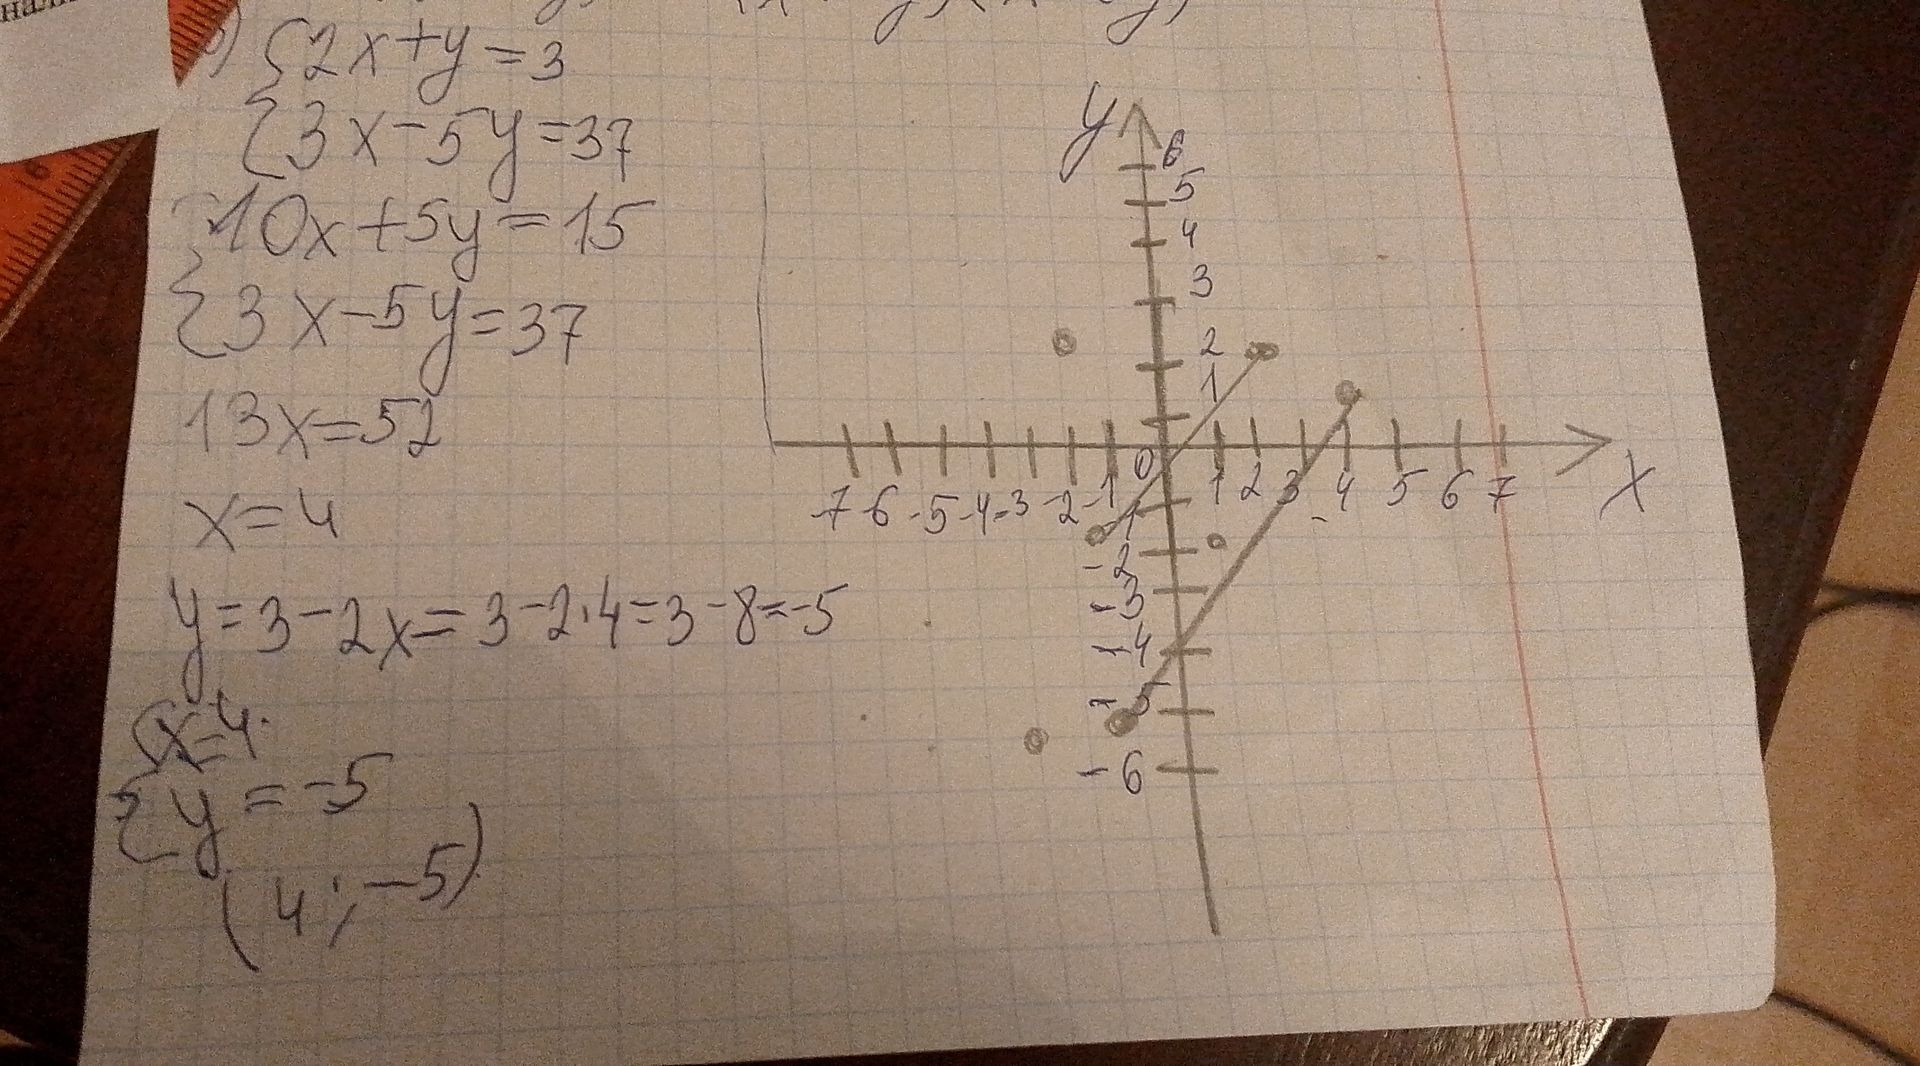 {2x+y=3
{3x-5y=37
10x+5y=15
{3x-5y=37
13x=52
x=4
y=3-2x=3-2·4=3-8=-5
{x=4
{y=-5
(4;-5)
y
6
5
4
3
2
1
-7 -6 -5 -4 -3 -2 -1 0 1 2 3 4 5 6 7 x
-1
-2
-3
-4
-5
-6